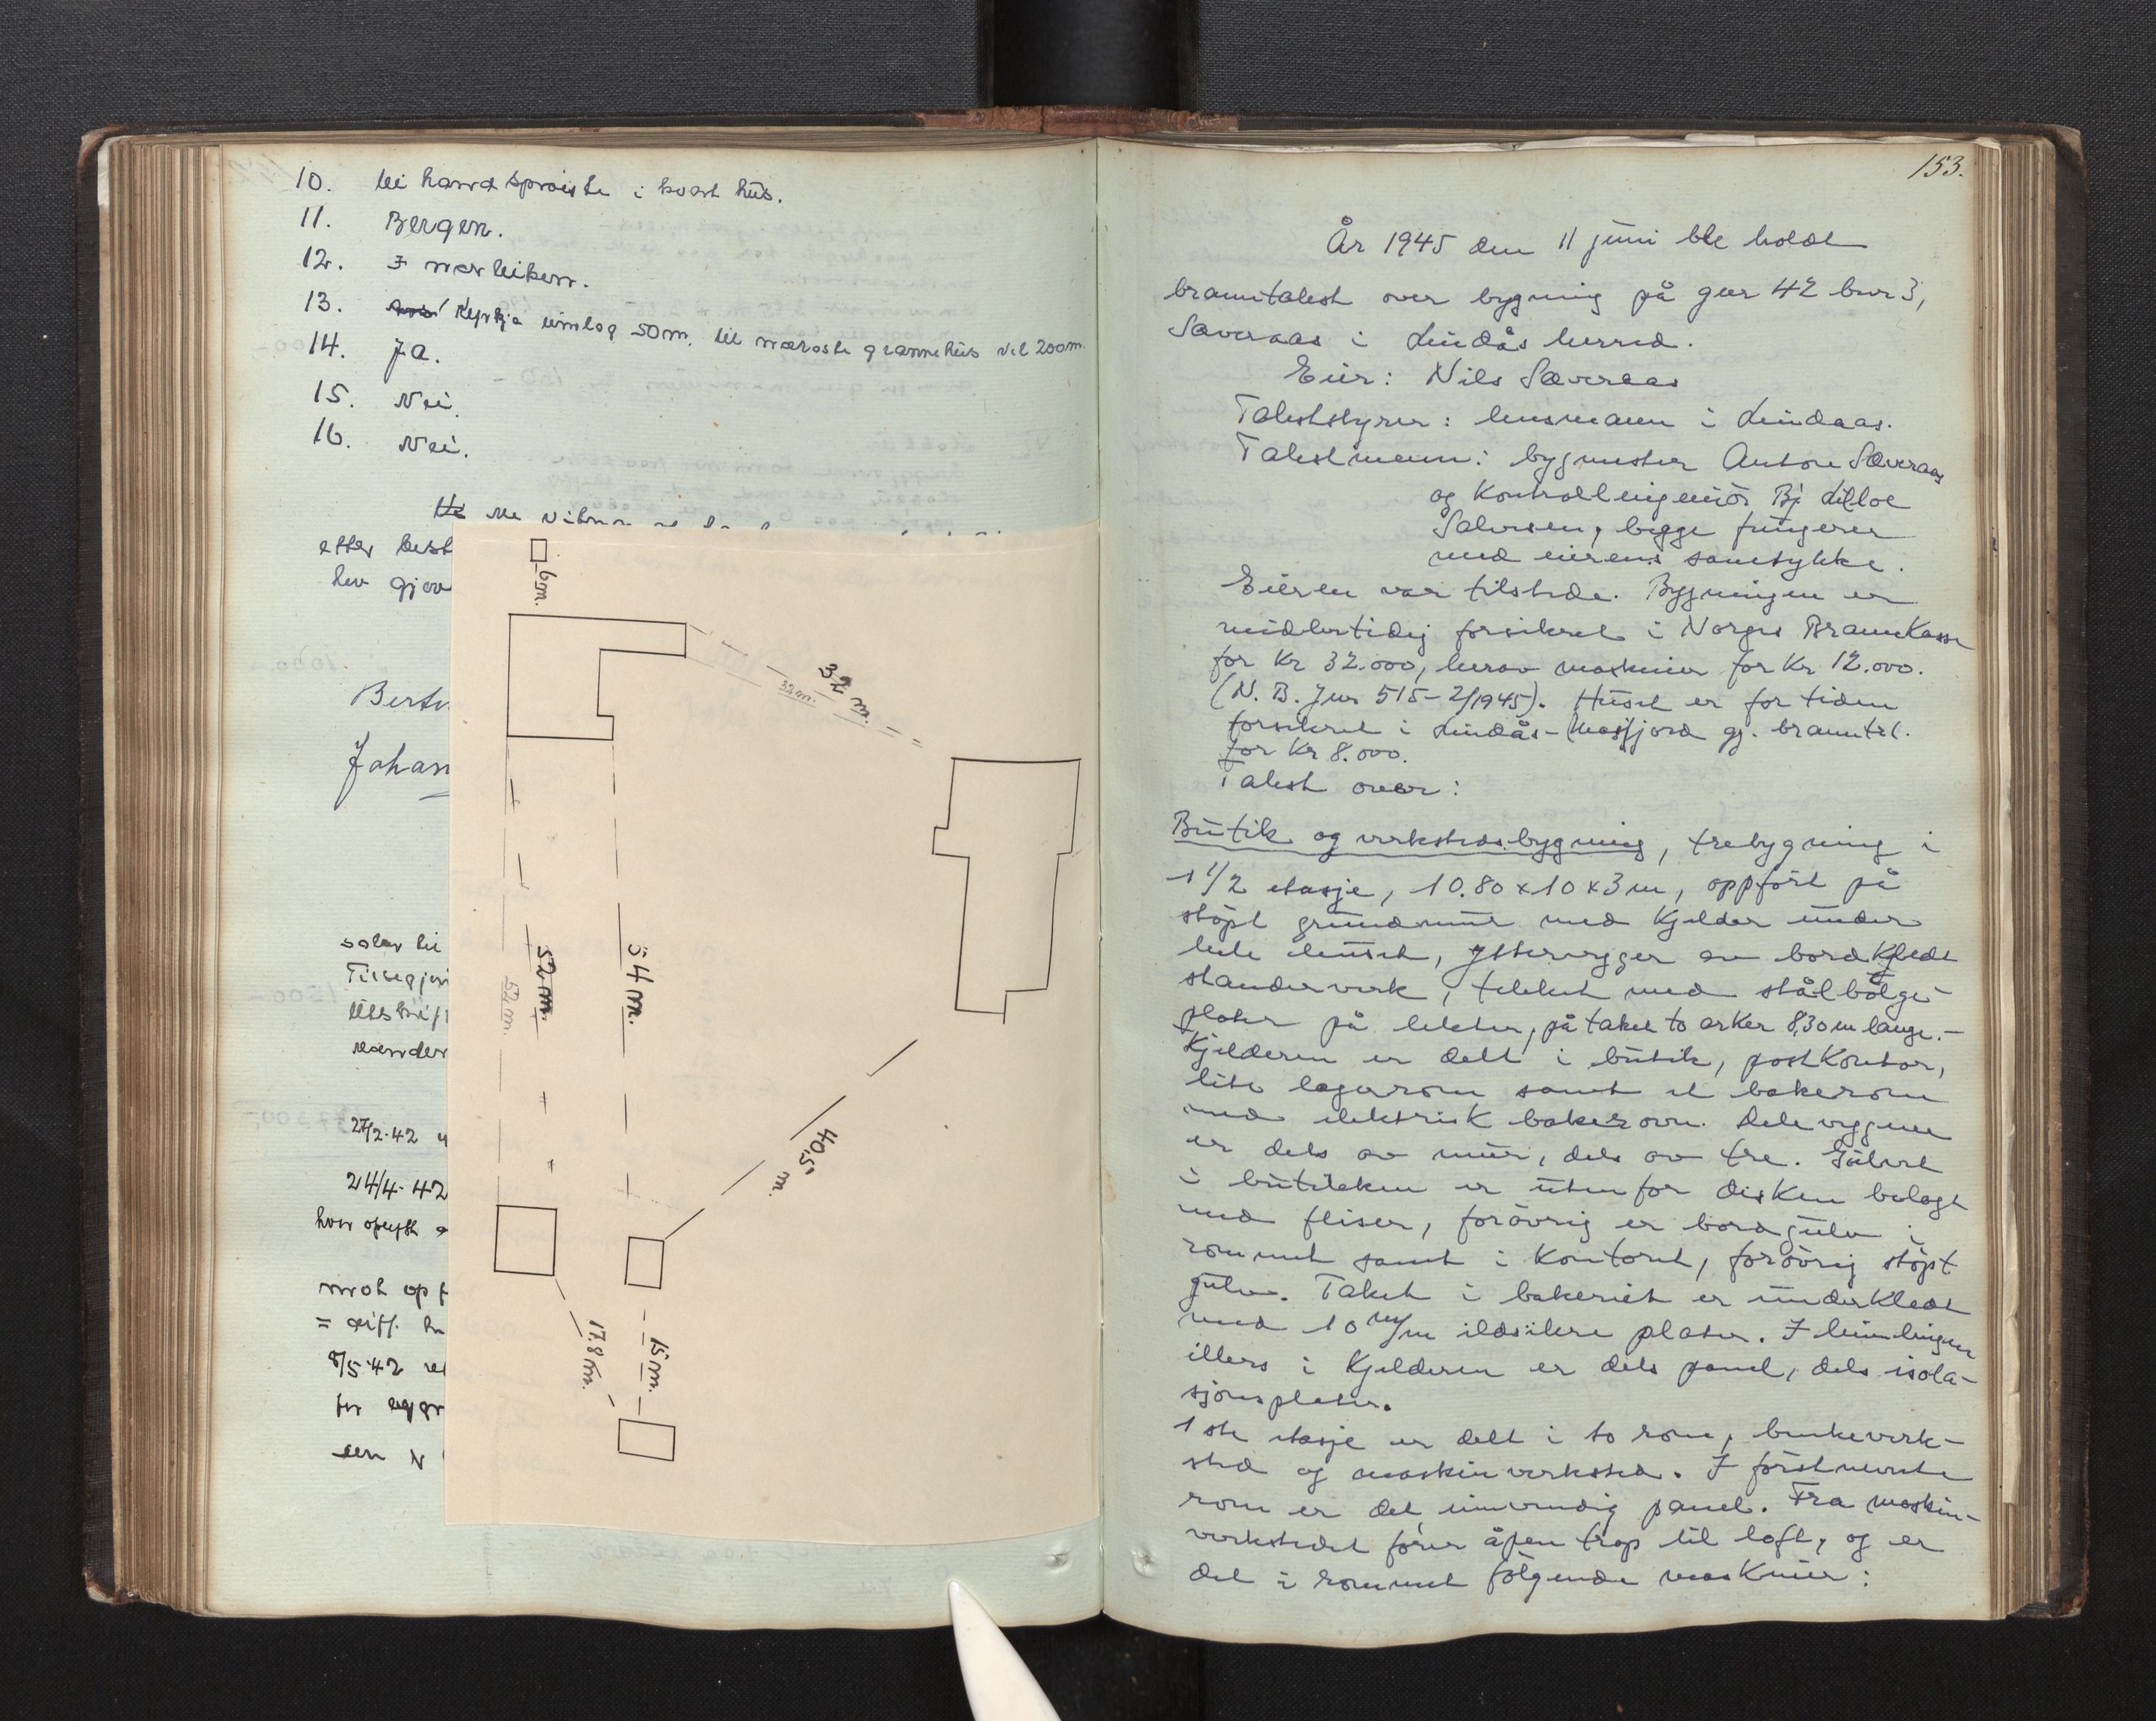 10. Ei handsprøite i kvart hus.
11. Bergen.
12. I nærleiken.
13. Kyrkja umlag 50 m. til næraste grannehus vel 200 m.
14. Ja.
15. Nei.
16. Nei.
efter best
hev gjev
Bert
Johan
27/2-42
24/4-42
mot opf
= diff.
8/5-42
6 m.
32 m.
32 m.
54 m.
52 m.
52 m.
40,5 m.
17.8 m.
15 m.
153.
År 1945 den 11 juni ble holdt
branntakst over bygning på gnr 42 bnr 3,
Sæveraas i Lindås herred.
Eier: Nils Sæveraas
Takststyrer: lensmannen i Lindaas.
Takstmenn: bygmester Anton Sæveraas
og Kontrollingeniør Bj. Lilloe
Salvesen, begge fungerer
med eierens samtykke.
Eieren var tilstede. Bygningen er
midlertidig forsikret i Norges BrannKasse
for Kr 32.000, herav maskiner for Kr 12.000.
(N. B. Jnr 515-2/1945). Huset er for tiden
forsikret i Lindås-Masfjord gj. branntr.
for Kr 8.000.
Takst over:
Butik og verkstedsbygning, trebygning i
1 1/2 etasje, 10.80 x 10 x 3 m, oppført på
støpt grunnmur med Kjelder under
hele huset, yttervegger av bordKledt
standerverk, tekket med stålbølge-
plater på lekter, på taket to arKer 8,30 m lange.-
Kjelderen er delt i butik, postKontor,
lite lagerrom samt et bakerom
med elektrisK bakerovn. Deleveggene
er dels av mur, dels av tre. Gulvet
i butikken er utenfor disKen belagt
med fliser, forøvrig er bordgulv i
rommet samt i Kontoret, forøvrig støpt
gulv. Taket i bakeriet er underKledt
med 10 m/m ildsikre plater. I himlingen
ellers i Kjelderen er dels panel, dels isola-
sjonsplater.
1ste etasje er delt i to rom, benkeverk-
sted og maskinverksted. I førstnevnte
rom er det innvendig panel. Fra maskin-
verkstedet fører åpen trap til loft, og er
det i rommet følgende masKiner: